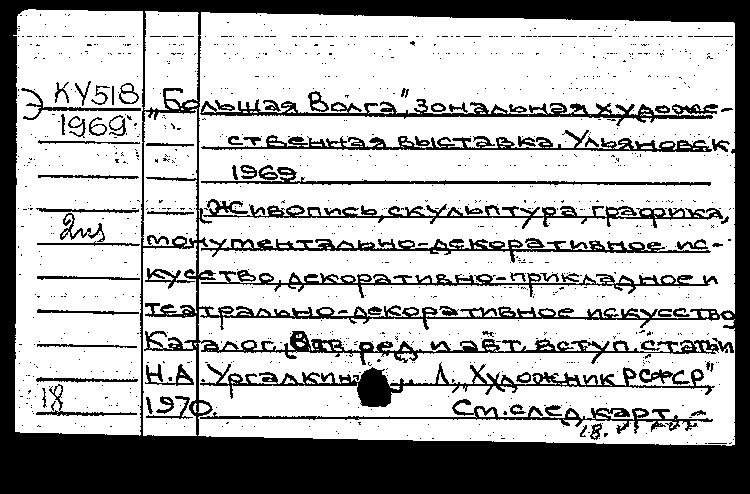 Э КУ518
1969
2из
18
„Большая Волга", зональная художе-
ственная выставка. Ульяновск.
1969.
Живопись, скульптура, графика,
монументально-декоративное ис-
кусство, декоративно-прикладное и
театрально-декоративное искусство
Каталог. Отв. ред. и авт. вступ. статьи
Н.А. Ургалкин. Л., „Художник РСФСР",
1970. См. след. карт.